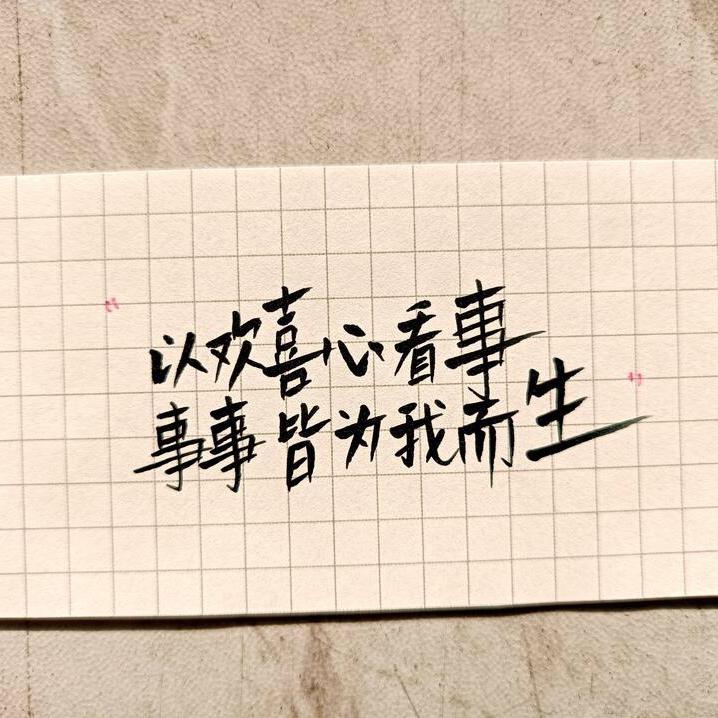 “以欢喜心看事
事事皆为我而生”